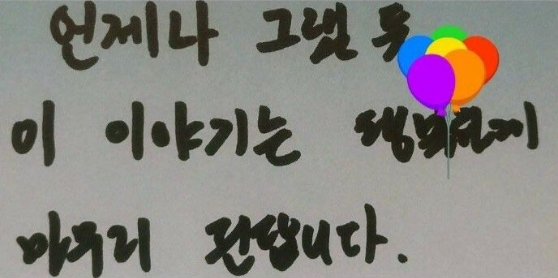 언제나 그랬듯
이 이야기는 행복하게
마무리 된답니다.